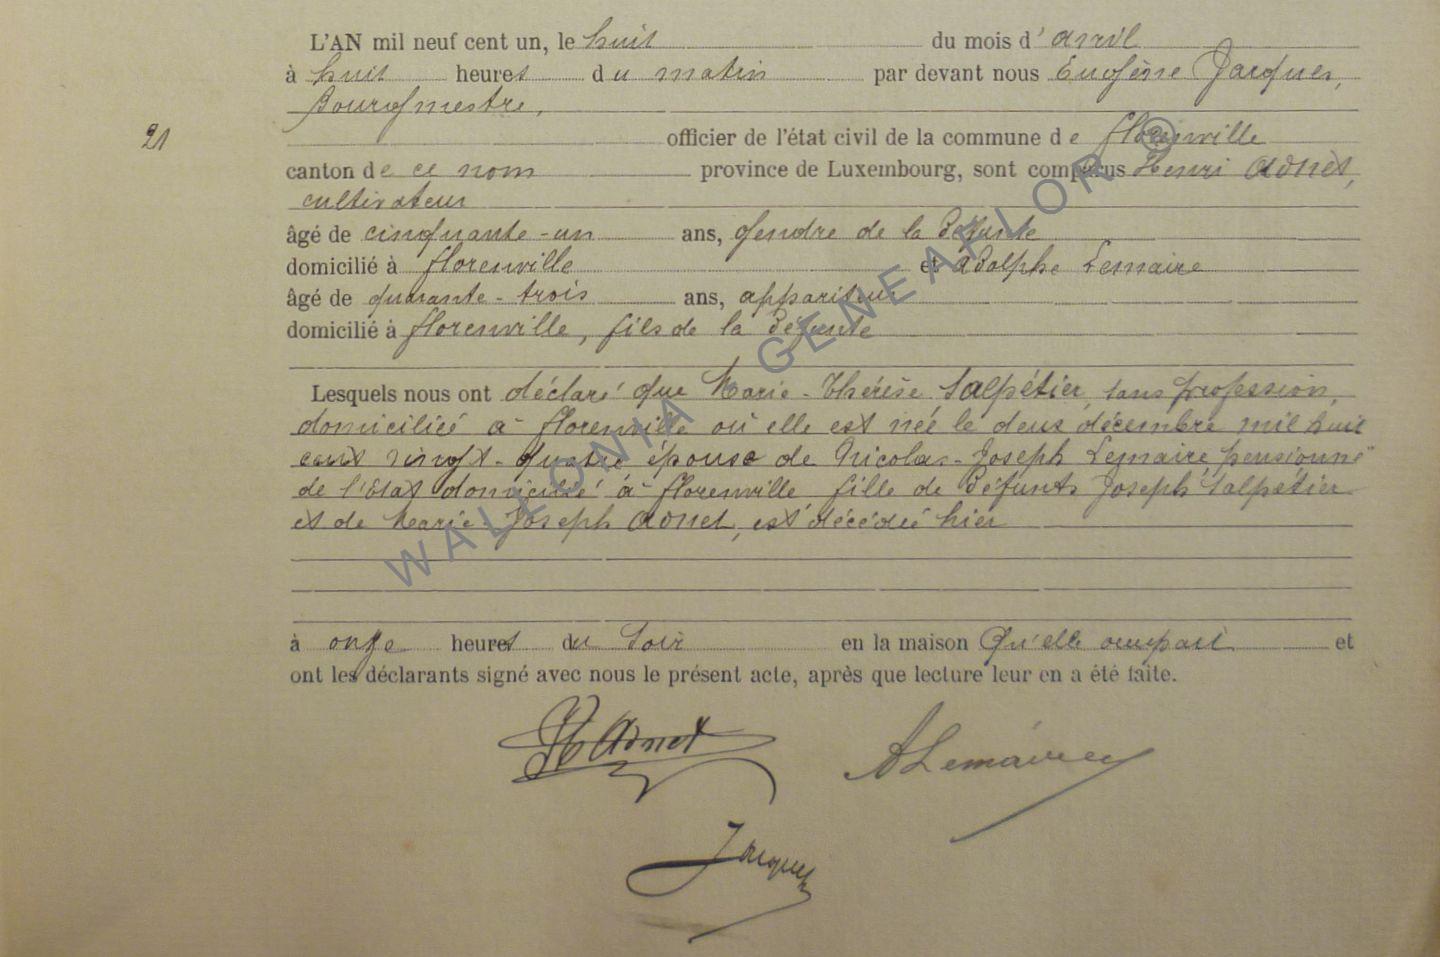 L'AN mil neuf cent un, le huit du mois d'avril
à huit heures du matin par devant nous Eugène Jacques,
Bourgmestre,
21 officier de l'état civil de la commune de Florenville
canton de ce nom province de Luxembourg, sont comparus Henri Adnet,
cultivateur
âgé de cinquante-un ans, gendre de la défunte
domicilié à Florenville et Adolphe Lemaire
âgé de quarante-trois ans, appariteur
domicilié à Florenville, fils de la défunte
Lesquels nous ont déclaré que Marie-Thérèse Salpétier, sans profession,
domiciliée à Florenville où elle est née le deux décembre mil huit
cent vingt-quatre épouse de Nicolas-Joseph Lemaire, pensionné
de l'Etat domicilié à Florenville fille de défunts Joseph Salpétier
et de Marie-Joseph Adnet, est décédée hier
à onze heures du soir en la maison qu'elle occupait et
ont les déclarants signé avec nous le présent acte, après que lecture leur en a été faite.
H Adnet A Lemaire
Jacques
WALLONIA GENEAFLOR ©